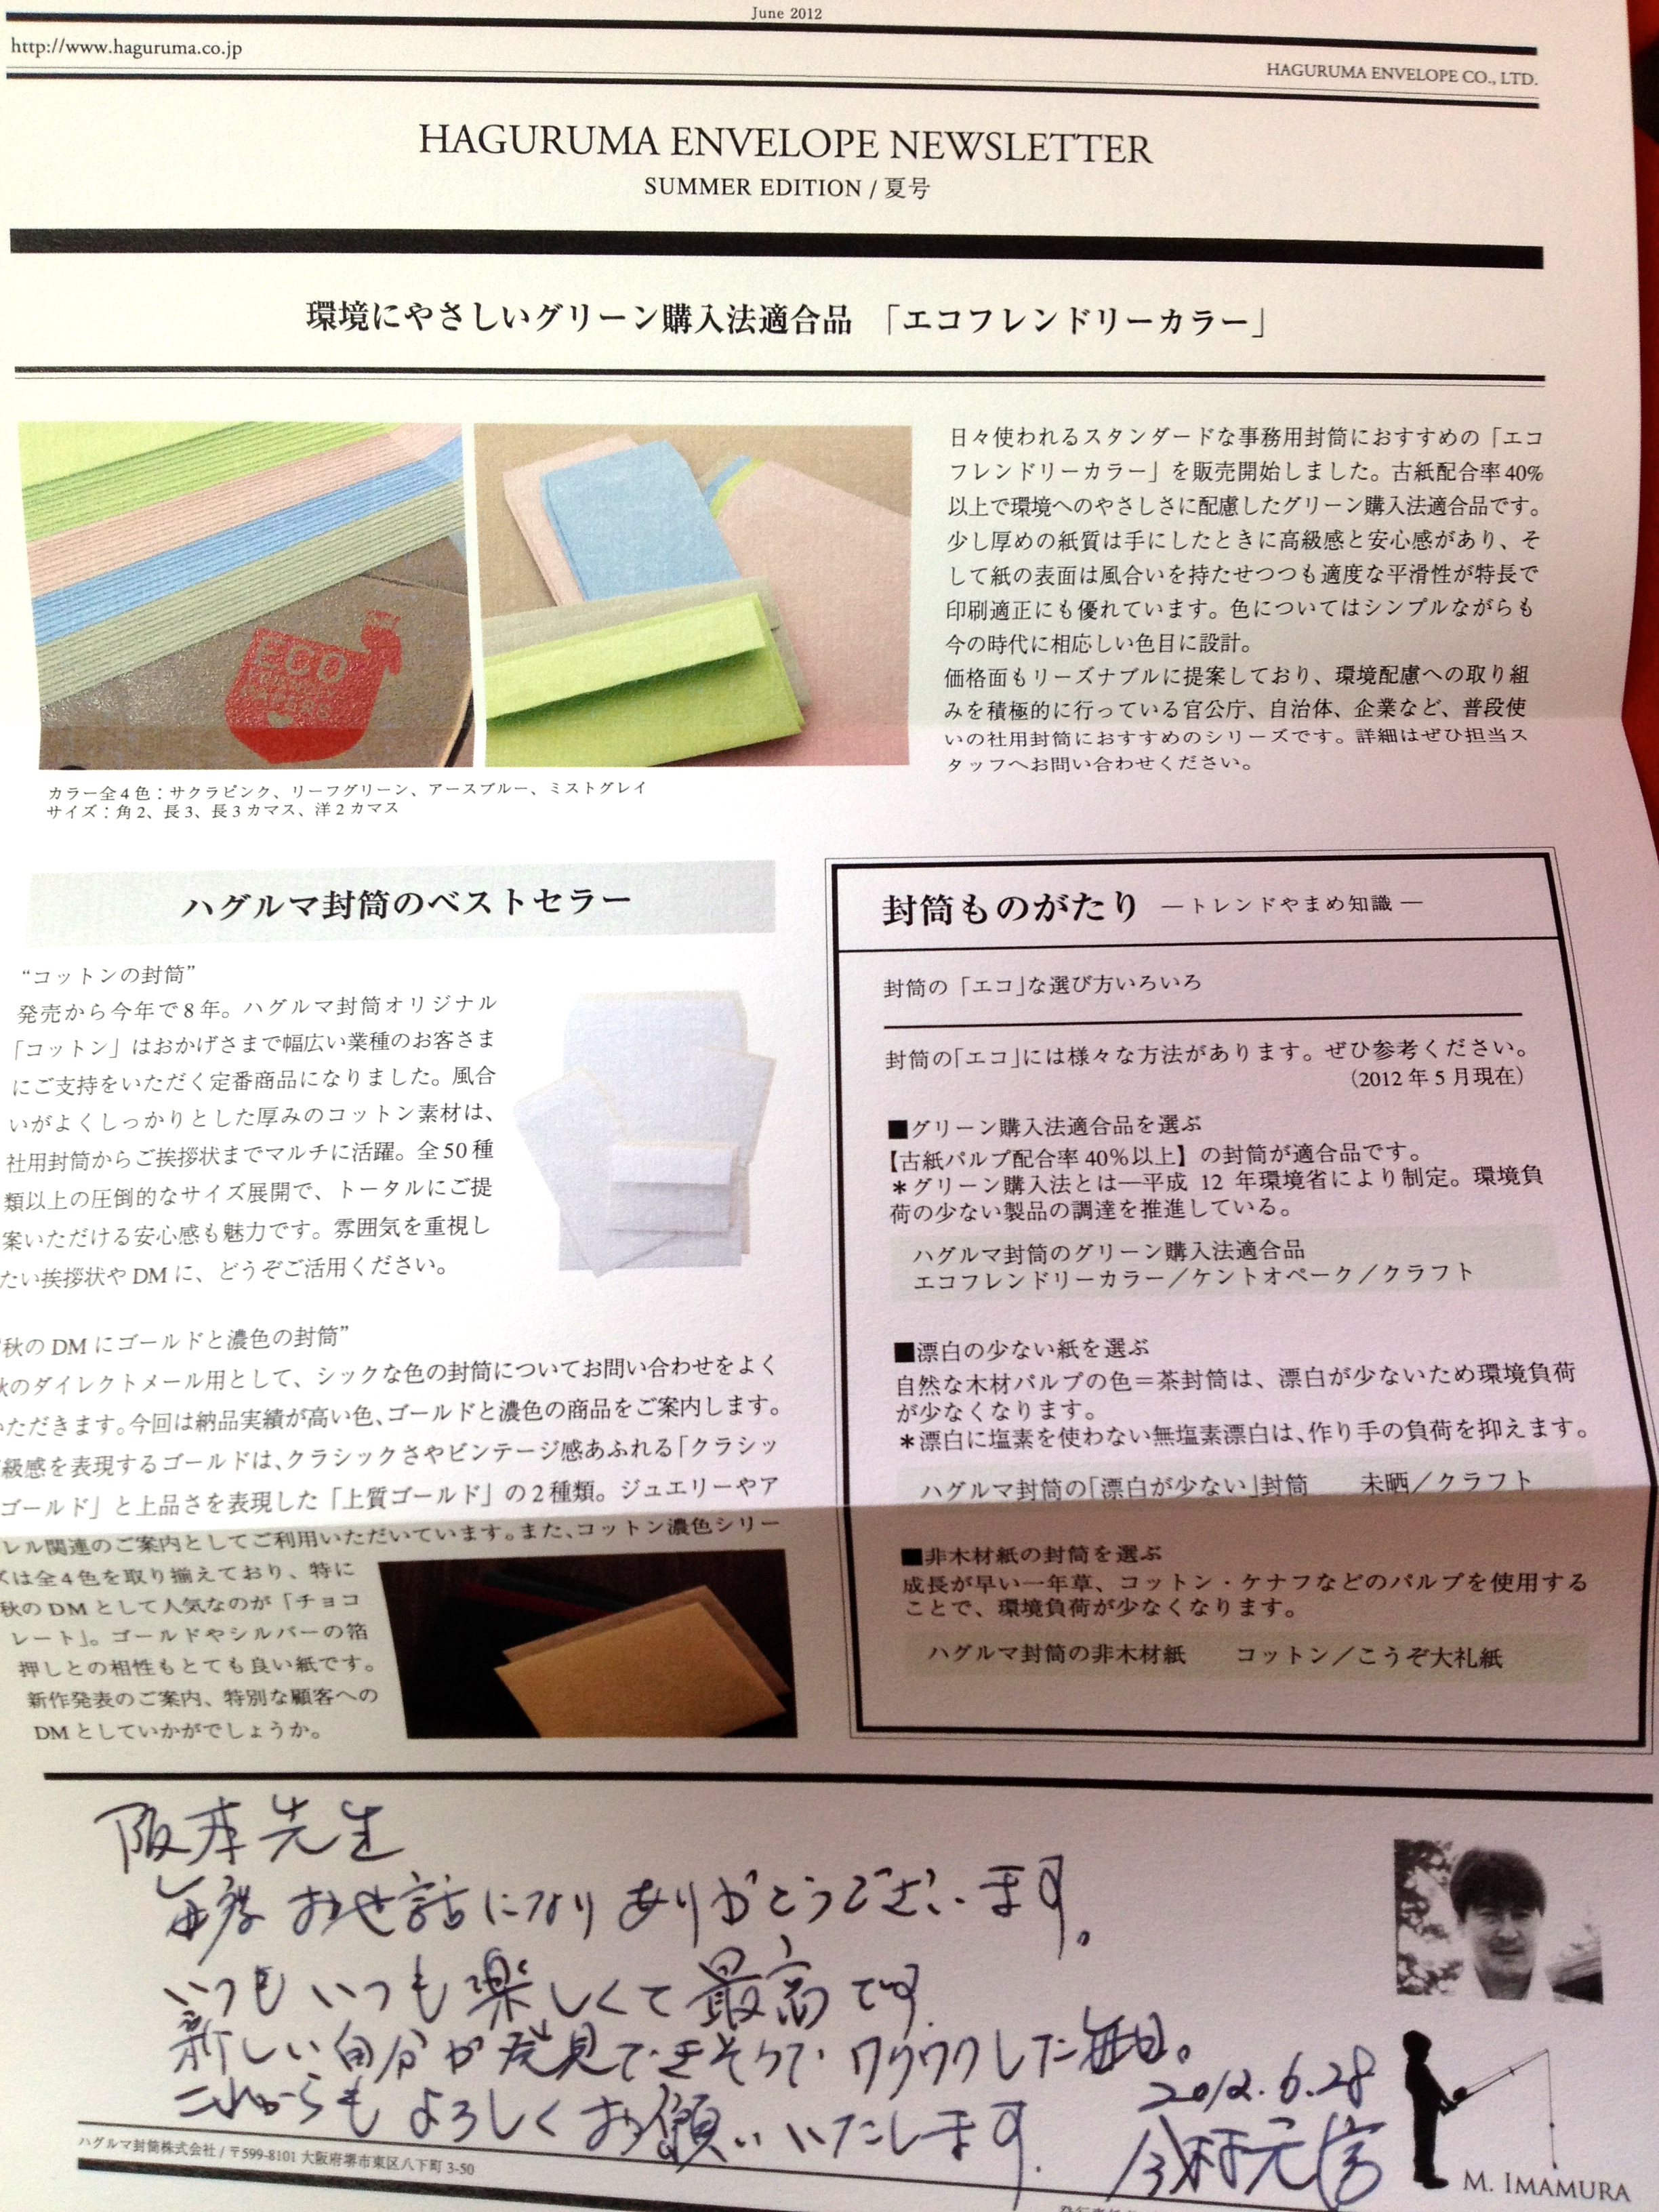 June 2012
http://www.haguruma.co.jp
HAGURUMA ENVELOPE CO., LTD.
HAGURUMA ENVELOPE NEWSLETTER
SUMMER EDITION / 夏号
環境にやさしいグリーン購入法適合品 「エコフレンドリーカラー」
日々使われるスタンダードな事務用封筒におすすめの「エコ
フレンドリーカラー」を販売開始しました。古紙配合率40%
以上で環境へのやさしさに配慮したグリーン購入法適合品です。
少し厚めの紙質は手にしたときに高級感と安心感があり、そ
して紙の表面は風合いを持たせつつも適度な平滑性が特長で
印刷適正にも優れています。色についてはシンプルながらも
今の時代に相応しい色目に設計。
価格面もリーズナブルに提案しており、環境配慮への取り組
みを積極的に行っている官公庁、自治体、企業など、普段使
いの社用封筒におすすめのシリーズです。詳細はぜひ担当ス
タッフへお問い合わせください。
ECO
カラー全4色：サクラピンク、リーフグリーン、アースブルー、ミストグレイ
サイズ：角2、長3、長3カマス、洋2カマス
ハグルマ封筒のベストセラー
“コットンの封筒”
発売から今年で8年。ハグルマ封筒オリジナル
「コットン」はおかげさまで幅広い業種のお客さま
にご支持をいただく定番商品になりました。風合
いがよくしっかりとした厚みのコットン素材は、
社用封筒からご挨拶状までマルチに活躍。全50種
類以上の圧倒的なサイズ展開で、トータルにご提
案いただける安心感も魅力です。雰囲気を重視し
たい挨拶状やDMに、どうぞご活用ください。
秋のDMにゴールドと濃色の封筒”
秋のダイレクトメール用として、シックな色の封筒についてお問い合わせをよく
いただきます。今回は納品実績が高い色、ゴールドと濃色の商品をご案内します。
級感を表現するゴールドは、クラシックさやビンテージ感あふれる「クラシッ
ゴールド」と上品さを表現した「上質ゴールド」の2種類。ジュエリーやア
レル関連のご案内としてご利用いただいています。また、コットン濃色シリー
ズは全4色を取り揃えており、特に
秋のDMとして人気なのが「チョコ
レート」。ゴールドやシルバーの箔
押しとの相性もとても良い紙です。
新作発表のご案内、特別な顧客への
DMとしていかがでしょうか。
封筒ものがたり ―トレンドやまめ知識―
封筒の「エコ」な選び方いろいろ
封筒の「エコ」には様々な方法があります。ぜひ参考ください。
（2012年5月現在）
■グリーン購入法適合品を選ぶ
【古紙パルプ配合率40%以上】の封筒が適合品です。
＊グリーン購入法とは―平成 12 年環境省により制定。環境負
荷の少ない製品の調達を推進している。
ハグルマ封筒のグリーン購入法適合品
エコフレンドリーカラー／ケントオペーク／クラフト
■漂白の少ない紙を選ぶ
自然な木材パルプの色＝茶封筒は、漂白が少ないため環境負荷
が少なくなります。
＊漂白に塩素を使わない無塩素漂白は、作り手の負荷を抑えます。
ハグルマ封筒の「漂白が少ない」封筒 未晒／クラフト
■非木材紙の封筒を選ぶ
成長が早い一年草、コットン・ケナフなどのパルプを使用する
ことで、環境負荷が少なくなります。
ハグルマ封筒の非木材紙 コットン／こうぞ大礼紙
阪本先生
毎度お世話になりありがとうございます。
いつもいつも楽しくて最高です
新しい自分が発見できそうでワクワクした毎日。
これからもよろしくお願いいたします.
2012.6.28
今村元
M. IMAMURA
ハグルマ封筒株式会社 / 〒599-8101 大阪府堺市東区八下町 3-50